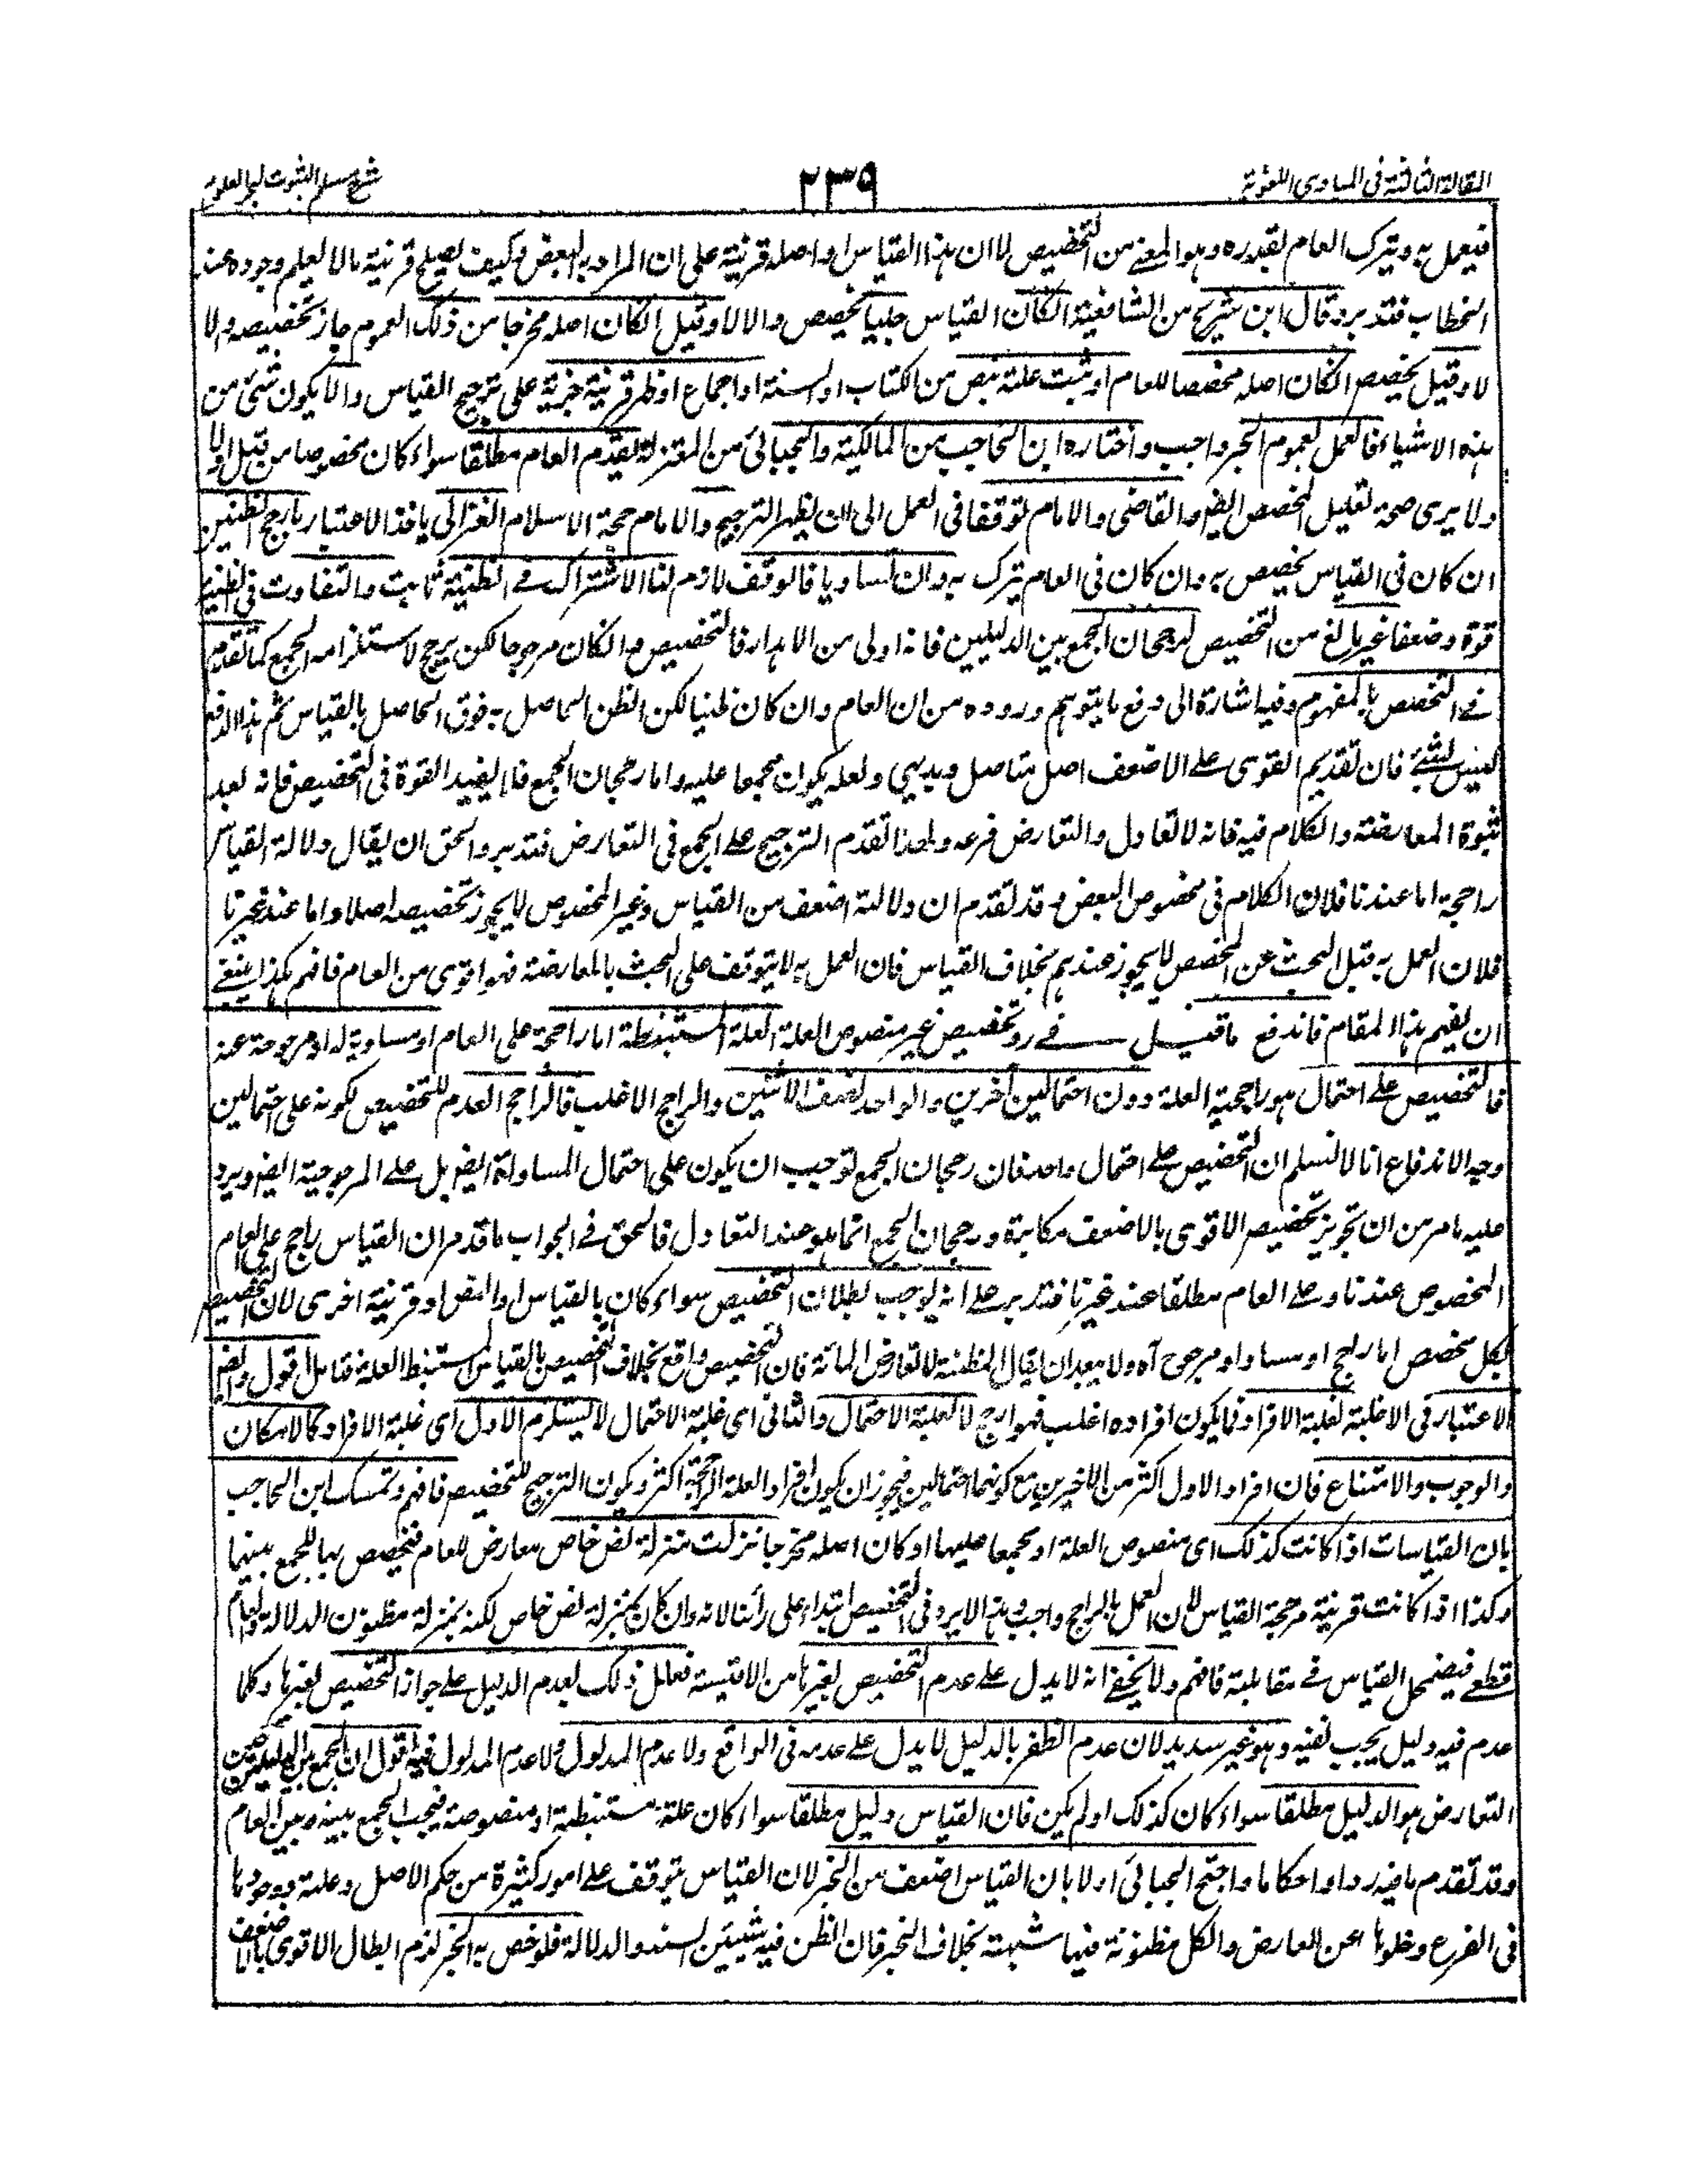 المقالة الثالثة فى المبادى اللغوية
٢٣٩
شرح مسلم الثبوت لبحر العلوم
فيعمل به ويترك العام بقدره وهو المعنے من التخصيص لا ان هذا القياس او اصله قرينة على ان المراد به البعض وكيف يصلح قرينة ما لا يعلم وجوده عند
الخطاب فتدبر وقال ابن شريح من الشافعية ان كان القياس جليا يخصص والا لا وقيل ان كان اصله مخرجا من ذلك العموم جاز تخصيصه والا
لا وقيل يخصص ان كان اصله مخصصا للعام او ثبت علته بنص من الكتاب او السنة او اجماع او ظهر قرينة جزئية على ترجيح القياس والا يكون شئ من
هذه الاشياء فالعمل بعموم الخبر واجب واختاره ابن الحاجب من المالكية والجبائى من المعتزلة يقدم العام مطلقا سواء كان مخصوصا من قبل او لا
ولا يرى صحة تعليل المخصص ايضا والقاضى والامام توقفا فى العمل الى ان يظهر الترجيح والامام حجة الاسلام الغزالى يا خذ الاعتبار بارجح الظنين
ان كان فى القياس يخصص به وان كان فى العام يترك به وان تساويا فالوقف لازم لنا الاشتراك فے الظنية ثابت والتفاوت فى الظنية
قوة وضعفا غير مانع من التخصيص لرجحان الجمع بين الدليلين فانه اولى من الاهدار فالتخصيص وان كان مرجوحا لكن يرجح لاستلزامه الجمع كما تقدم
فے التخصيص بالمفهوم وفيه اشارة الى دفع ما يتوهم وروده من ان العام وان كان ظنيا لكن الظن الحاصل به فوق الحاصل بالقياس ثم هذا الدفع
ليس بشئ فان تقديم القوى على الاضعف اصل متاصل وبديهى ولعله يكون مجمعا عليه واما رجحان الجمع فانما يفيد القوة فى التخصيص فانه بعد
ثبوة المعارضة والكلام فيه فانه لا تعادل والتعارض فرعه ولهذا تقدم الترجيح على الجمع فى التعارض فتدبر والحق ان يقال دلالة القياس
راجحة اما عندنا فلان الكلام فى مخصوص البعض وقد تقدم ان دلالته اضعف من القياس وغير المخصوص لا يجوز تخصيصه اصلا واما عند غيرنا
فلان العمل به قبل البحث عن المخصص لا يجوز عندهم بخلاف القياس فان العمل به لا يتوقف على البحث بالمعارضة فهو اقوى من العام فافهم هكذا ينبغے
ان يفهم هذا المقام فاندفع ما قيل فے رد تخصيص غير منصوص العلة العلة المستنبطة اما راحجة على العام او مساوية له او مرجوحة عنه
فالتخصيص على احتمال هو راجحية العلة دون احتمالين آخرين والواحد نصف الاثنين والراجح الاغلب فالراجح العدم للتخصيص لكونه على احتمالين
وجه الاندفاع انا لا نسلم ان التخصيص على احتمال واحد فان رجحان الجمع توجب ان يكون على احتمال المساواة ايضا بل على المرجوحية ايضا ويرد
عليه ما مر من ان تجويز تخصيص الاقوى بالاضعف مكابرة ورجحان الجمع انما هو عند التعادل فالحق فے الجواب ما قدم ان القياس راجح على العام
المخصوص عندنا وعلى العام مطلقا عند غيرنا فتدبر على انه يوجب بطلان التخصيص سواء كان بالقياس او النص او قرينة اخرى لان التخصيص
لكل مخصص اما راجح او مساو او مرجوح آه ولا يبعد ان يقال المظنة لا تعارض المائة فان التخصيص واقع بخلاف التخصيص بالقياس المستنبط العلة فتامل اقول وايضا
الاعتبار فى الاغلبية لغلبة الافراد فما يكون افراده اغلب فهو ارجح لا لغلبة الاحتمال والثانى اى غلبة الاحتمال لا يستلزم الاول اى غلبة الافراد كالامكان
والوجوب والامتناع فان افراد الاول اكثر من الاخيرين مع كونهما احتمالين فيجوز ان يكون افراد العلة الراجحة اكثر ويكون الترجيح للتخصيص فافهم وتمسك ابن الحاجب
بان القياسات اذا كانت كذلك اى منصوص العلة او مجمعا عليها او كان اصله مخرجا نزلت منزلة نص خاص معارض للعام فيخصص بها للجمع بينهما
وكذا اذا كانت قرينة مرجحة القياس لان العمل بالراجح واجب وهذا لا يرد فى التخصيص ابتداء على رأينا لانه وان كان بمنزلة نص خاص لكنه بمنزلة مظنون الدلالة والعام
قطعے فيضمحل القياس فے مقابلته فافهم ولا يخفے انه لا يدل على عدم التخصيص بغيرها من الاقيسة فعلل ذلك بعدم الدليل على جواز التخصيص بغيرها وكلما
عدم فيه دليل يجب نفيه وهو غير سديد لان عدم الظفر بالدليل لا يدل على عدمه فى الواقع ولا عدم المدلول ولا عدم المدلول فيه اقول ان الجمع بين الدليلين حين
التعارض هو الدليل مطلقا سواء كان كذلك او لم يكن فان القياس دليل مطلقا سواء كان علته مستنبطة او منصوصة فيجب الجمع بينه وبين العام
وقد تقدم ما فيه ردا واحكاما واحتج الجبائى اولا بان القياس اضعف من الخبر لان القياس يتوقف على امور كثيرة من حكم الاصل وعلته ووجودها
فى الفرع وخلوها عن المعارض والكل مظنونة فيها شبهة بخلاف الخبر فان الظن فيه شيئين السند والدلالة فلو خص به الخبر لزم ابطال الاقوى بالاضعف